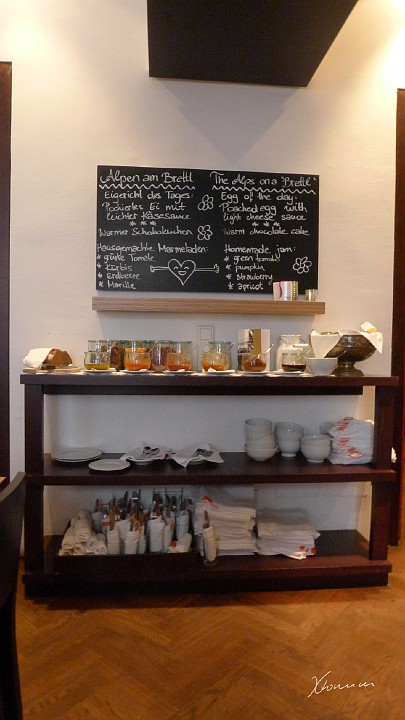 Alpen am Brettl
Eigericht des Tages:
Pochiertes Ei mit
leichter Käsesauce
* * *
Warmer Schokokuchen
Hausgemachte Marmeladen:
* grüne Tomate
* Kürbis
* Erdbeere
* Marille
The Alps on a "Brettl"
Egg of the day:
Poached egg with
light cheese sauce
* * *
Warm chocolate cake
Homemade jam:
* green tomato
* pumpkin
* strawberry
* apricot